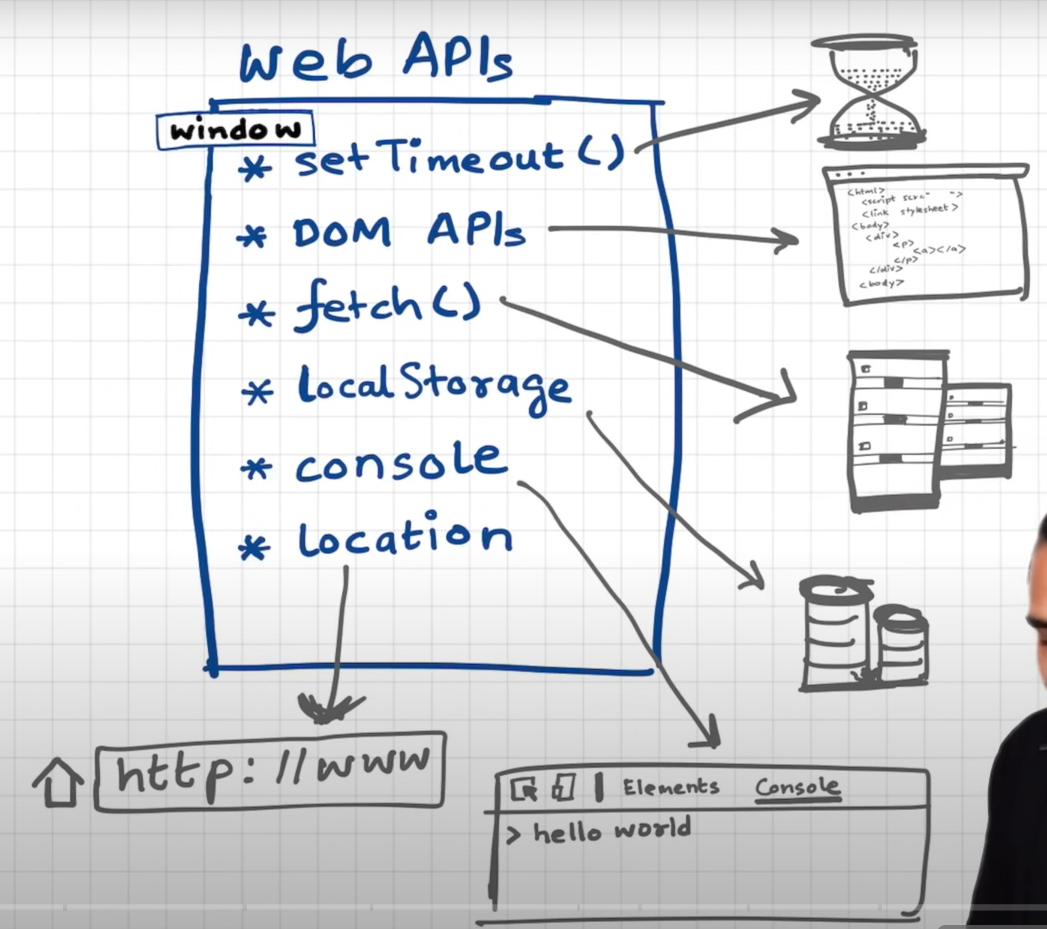 Web APIs
window
* setTimeout()
* DOM APIs
* fetch()
* localStorage
* console
* location
<html>
<link stylesheet>
<body>
<div>
<p>
<a></a>
</p>
</div>
<body>
http://www
Elements Console
> hello world